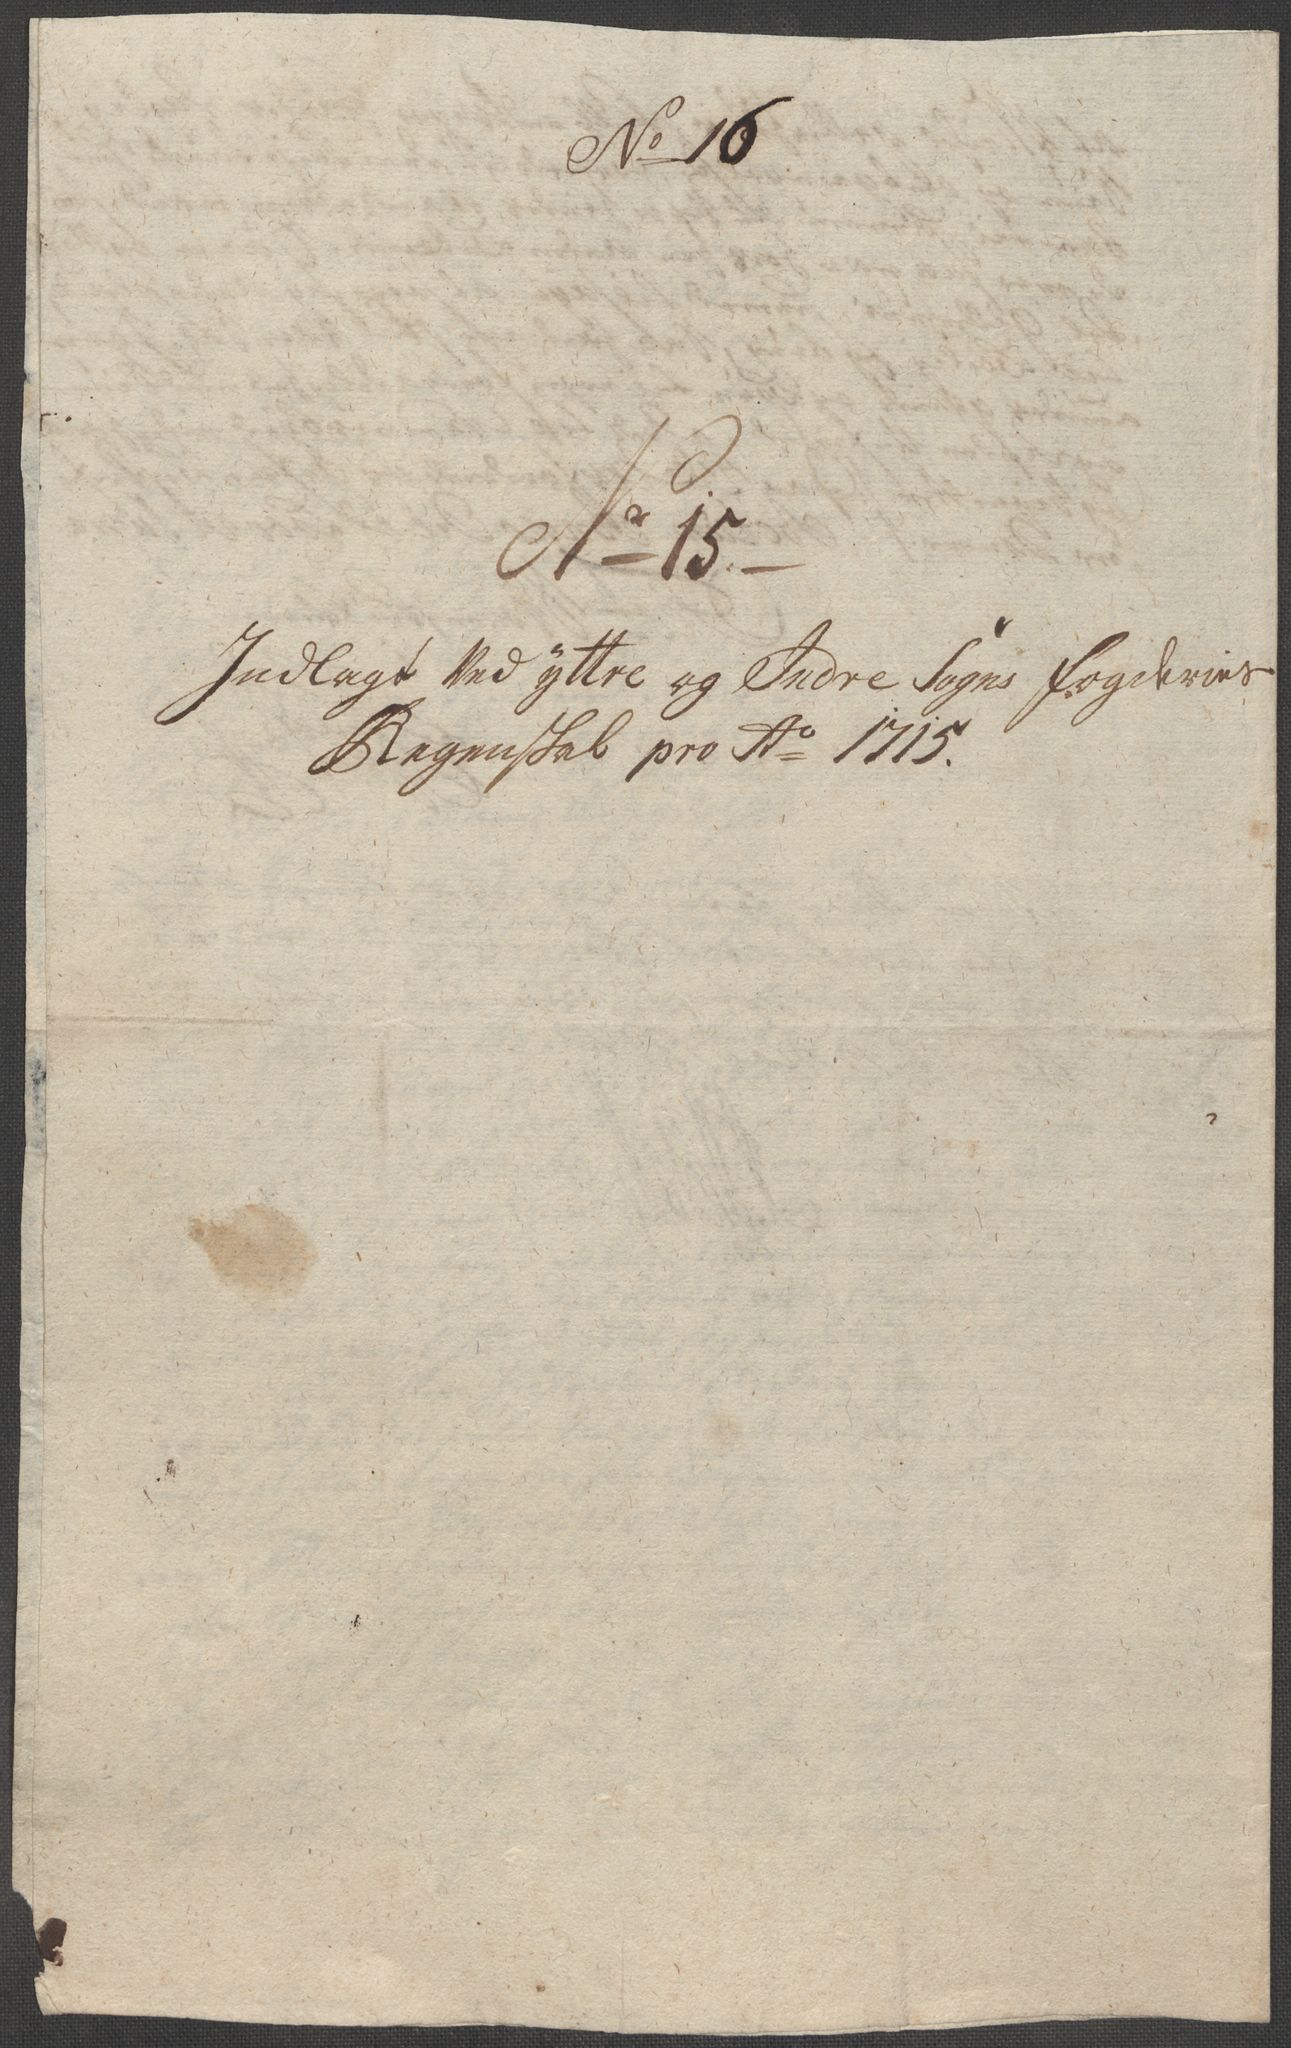 No 16
No 15.
Indlagt Ved ÿttre og Indre Sogns fogderies
Regenskab pro Ao 1715.